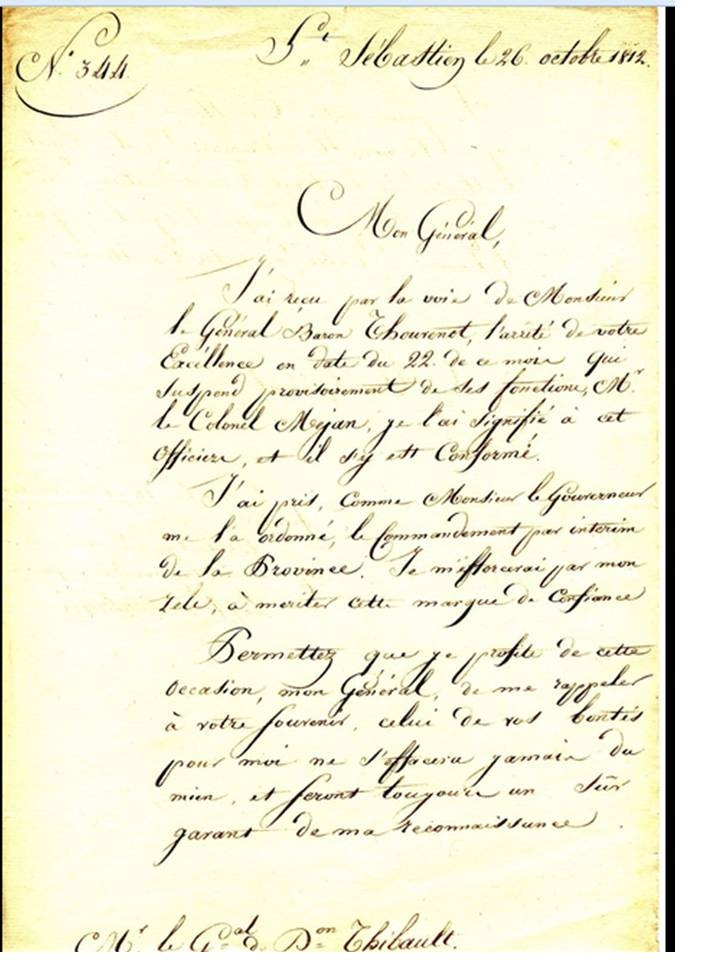 N.° 344.
St. Sébastien le 26. octobre 1812.
Mon Général,
J'ai reçu par la voie de Monsieur
le Général Baron Thouvenot, l'arrêté de votre
Excéllence en date du 22. de ce mois qui
suspend provisoirement de ses fonctions, Mr.
le Colonel Mejan, je l'ai signifié à cet
Officier, et il s'y est Conformé.
J'ai pris, Comme Monsieur le Gouverneur
me l'a ordonné, le Commandement par interim
de la Province. Je m'efforcerai par mon
zele, à meriter cette marque de Confiance
Permettez que je profite de cette
occasion, mon Général, de me rappeler
à votre Souvenir, celui de vos bontés
pour moi ne s'effacera jamais du
mien, et seront toujours un sûr
garant de ma reconnaissance.
Mr. le Gal. de Don Thibault.